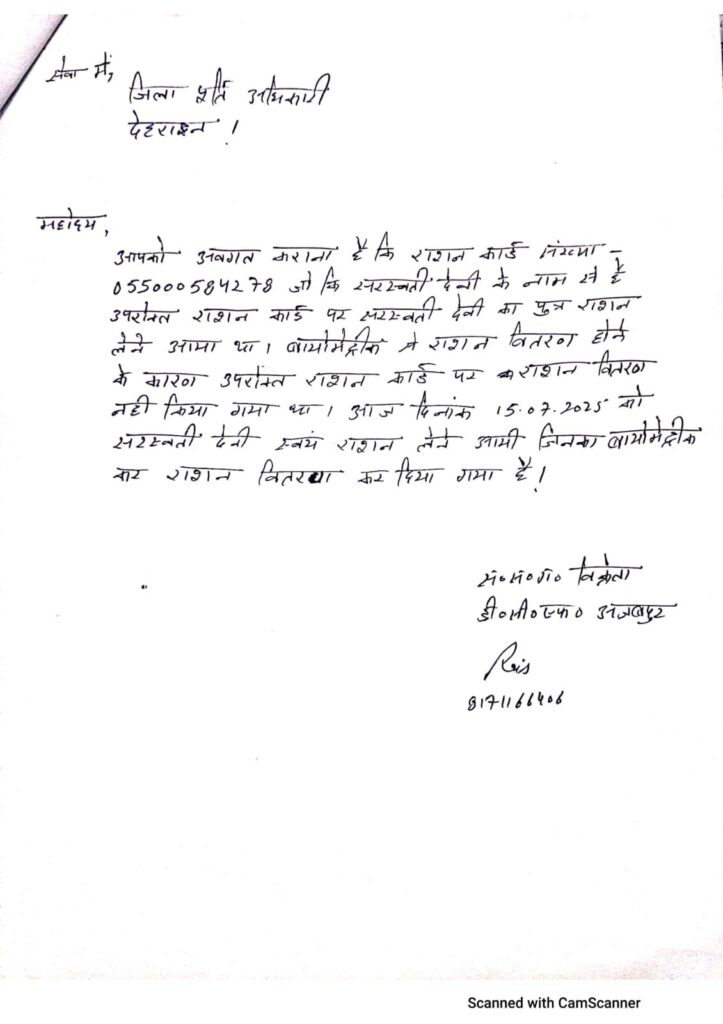 सेवा में,
जिला पूर्ति अधिकारी
देहरादून।
महोदय,
आपको अवगत कराना है कि राशन कार्ड संख्या -
055000584278 जो कि सरस्वती देवी के नाम से है
उपरोक्त राशन कार्ड पर सरस्वती देवी का पुत्र राशन
लेने आया था। बायोमेट्रीक से राशन वितरण होने
के कारण उपरोक्त राशन कार्ड पर राशन वितरण
नही किया गया था। आज दिनांक 15.07.2025 को
सरस्वती देवी स्वयं राशन लेने आयी जिनका बायोमेट्रीक
कर राशन वितरण कर दिया गया है।
स०स०ग० विक्रेता
डी०सी०एफ० अजबपुर
Rais
8171166406
Scanned with CamScanner